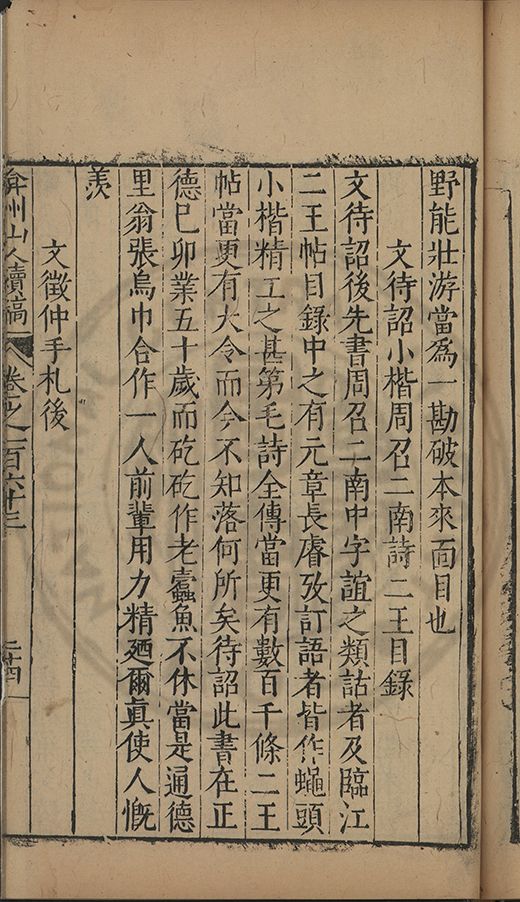 野能壯游當爲一勘破本來面目也
文待詔小楷周召二南詩二王目録
文待詔後先書周召二南中字誼之類詁者及臨江
二王帖目錄中之有元章長睿攷訂語者皆作蠅頭
小楷精工之甚第毛詩全傳當更有數百千條二王
帖當更有大令而今不知落何所矣待詔此書在正
德已卯業五十歲而矻矻作老蠹魚不休當是通德
里翁張烏巾合作一人前輩用力精廼爾眞使人慨
羨
文徵仲手札後
弇州山人續稿 卷之一百六十三 二十四